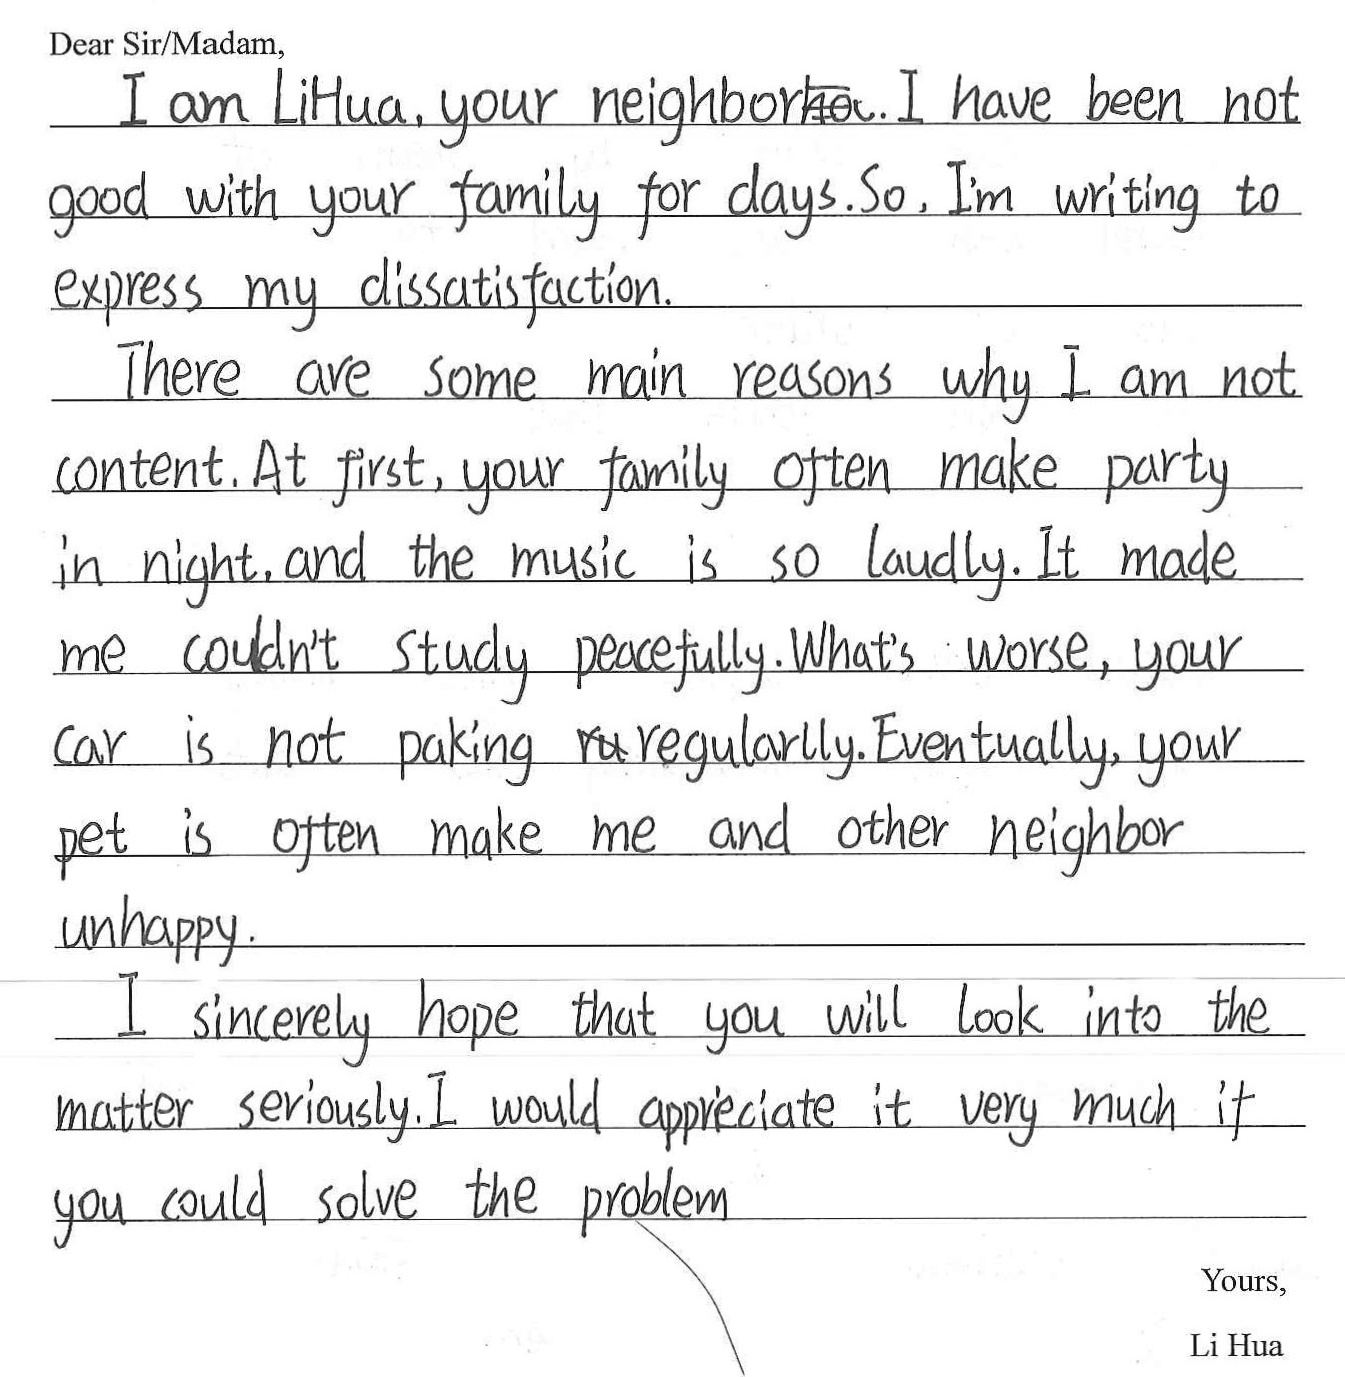 Dear Sir/Madam,
I am LiHua, your neighbor. I have been not
good with your family for days. So, I'm writing to
express my dissatisfaction.
There are some main reasons why I am not
content. At first, your family often make party
in night, and the music is so laudly. It made
me couldn't study peacefully. What's worse, your
car is not paking regularlly. Eventually, your
pet is often make me and other neighbor
unhappy.
I sincerely hope that you will look into the
matter seriously. I would appreciate it very much if
you could solve the problem
Yours,
Li Hua